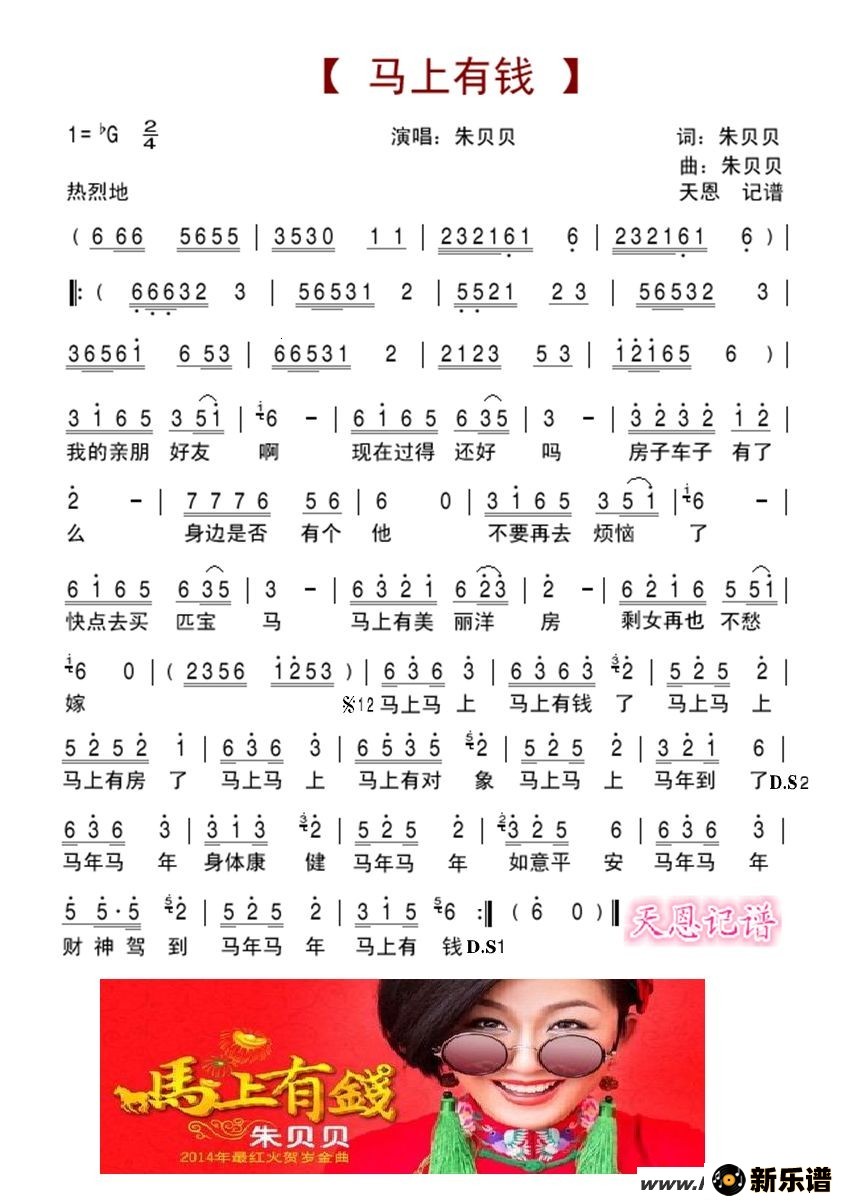 【 马上有钱 】
1= ♭G 2/4 演唱：朱贝贝 词：朱贝贝
曲：朱贝贝
热烈地 天恩 记谱
( 6 66 5655 | 3530 1 1 | 232161 6 | 232161 6 ) |
‖: ( 66632 3 | 56531 2 | 5521 2 3 | 56532 3 |
36561 6 53 | 66531 2 | 2123 5 3 | 12165 6 ) |
3 1 6 5 3 51 | 6 - | 6 1 6 5 6 35 | 3 - | 3 2 3 2 1 2 |
我的亲朋 好友 啊 现在过得 还好 吗 房子车子 有了
2 - | 7 7 7 6 5 6 | 6 0 | 3 1 6 5 3 51 | 6 - |
么 身边是否 有个 他 不要再去 烦恼 了
6 1 6 5 6 35 | 3 - | 6 3 2 1 6 23 | 2 - | 6 2 1 6 5 51 |
快点去买 匹宝 马 马上有美 丽洋 房 剩女再也 不愁
6 0 | ( 2356 1253 ) | 6 3 6 3 | 6 3 6 3 2 | 5 2 5 2 |
嫁 𝄋12 马上马 上 马上有钱 了 马上马 上
5 2 5 2 1 | 6 3 6 3 | 6 5 3 5 2 | 5 2 5 2 | 3 2 1 6 |
马上有房 了 马上马 上 马上有对 象 马上马 上 马年到 了D.S2
6 3 6 3 | 3 1 3 2 | 5 2 5 2 | 3 2 5 6 | 6 3 6 3 |
马年马 年 身体康 健 马年马 年 如意平 安 马年马 年
5 5·5 2 | 5 2 5 2 | 3 1 5 6 :‖ ( 6 0 ) ‖ 天恩记谱
财 神 驾 到 马年马 年 马上有 钱D.S1
馬上有錢
朱贝贝
2014年最红火贺岁金曲
新乐谱